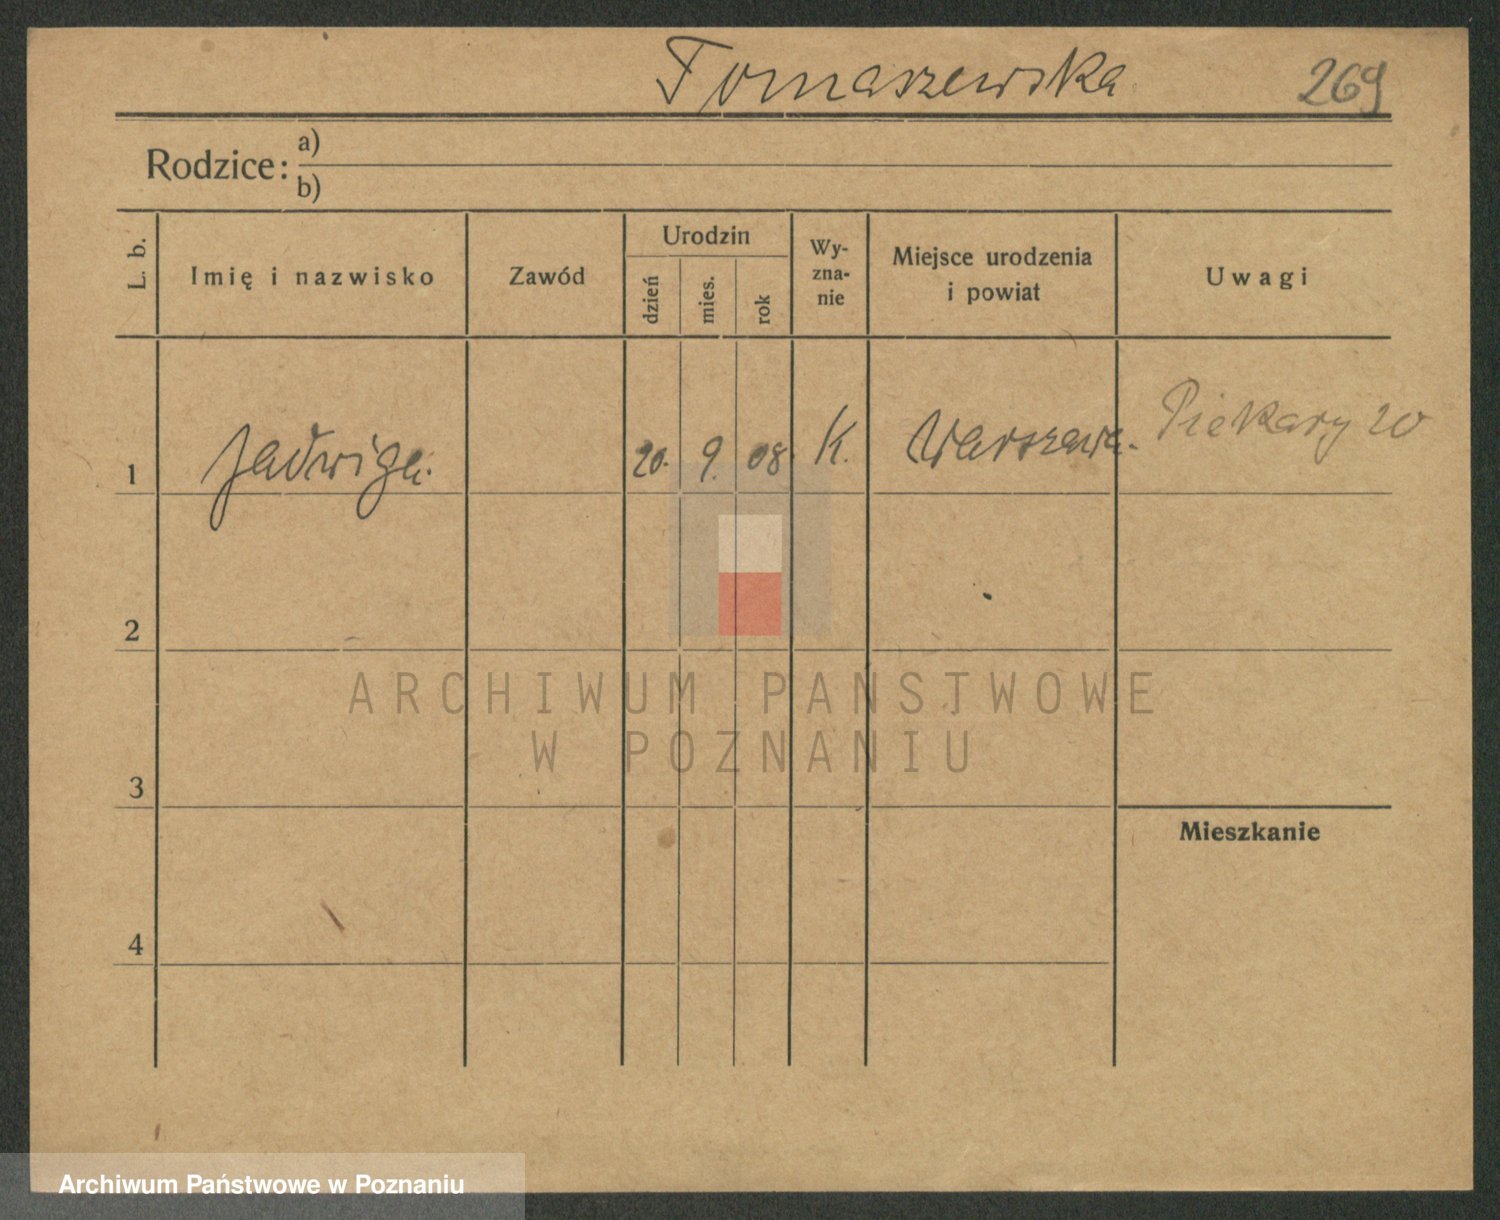 Tomaszewska 269
Rodzice: a)
b)
L. b.
Imię i nazwisko
Zawód
Urodzin
dzień
mies.
rok
Wy-
zna-
nie
Miejsce urodzenia
i powiat
Uwagi
1 Jadwiga. 20. 9. 08. K. Warszawa. Piekary 20
2
ARCHIWUM PAŃSTWOWE
W POZNANIU
3
Mieszkanie
4
Archiwum Państwowe w Poznaniu